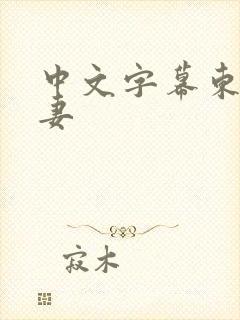 中文字幕东
妻
寂木